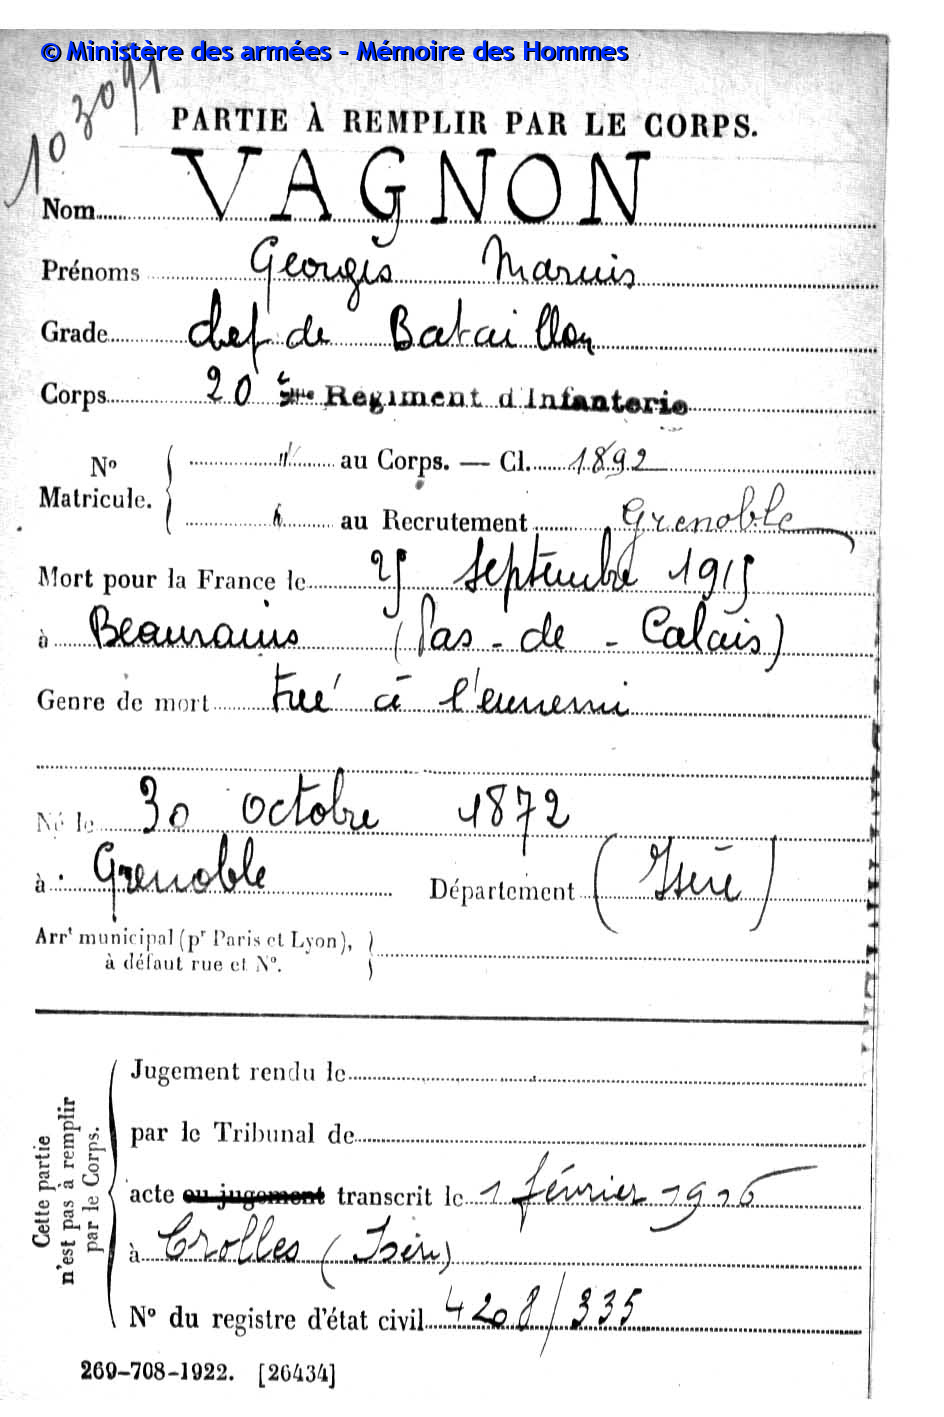 © Ministère des armées - Mémoire des Hommes
103091
PARTIE À REMPLIR PAR LE CORPS.
Nom VAGNON
Prénoms Georges Marius
Grade chef de Bataillon
Corps 20e Régiment d'Infanterie
No Matricule. " au Corps. — Cl. 1892
" au Recrutement Grenoble
Mort pour la France le 25 septembre 1915
à Beaurains (Pas-de-Calais)
Genre de mort tué à l'ennemi
Né le 30 octobre 1872
à Grenoble Département (Isère)
Arrt municipal (pr Paris et Lyon),
à défaut rue et No.
Cette partie n'est pas à remplir par le Corps.
Jugement rendu le
par le Tribunal de
acte ou jugement transcrit le 1 février 1916
à Crolles (Isère)
No du registre d'état civil 4208/335
269-708-1922. [26434]